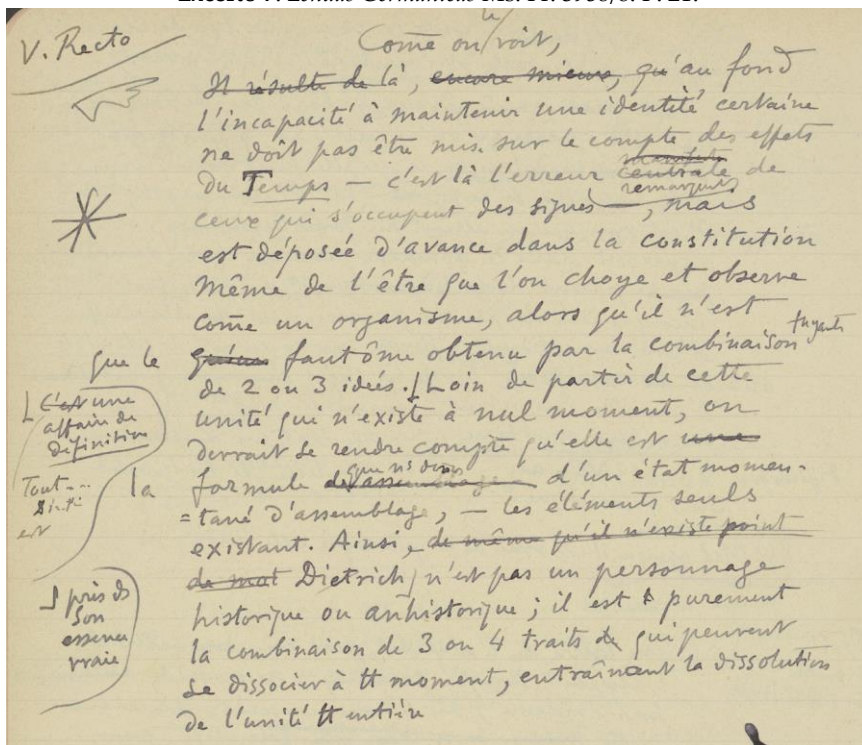 V. Recto
Come on le voit,
Il résulte de là, encore mieux, qu'au fond
l'incapacité à maintenir une identité certaine
ne doit pas être mis sur le compte des effets
du Temps — c'est là l'erreur centrale de
remarquable
ceux qui s'occupent des signes —, mais
est déposée d'avance dans la constitution
même de l'être que l'on choye et observe
come un organisme, alors qu'il n'est
que le
fantôme obtenu par la combinaison fuyante
de 2 ou 3 idées. Loin de partir de cette
unité qui n'existe à nul moment, on
devrait se rendre compte qu'elle est une
la
formule d'un état momen-
que ns dons
=tané d'assemblage, — les éléments seuls
existant. Ainsi, de même qu'il n'existe point
de mot Dietrich, n'est pas un personnage
historique ou anhistorique ; il est purement
la combinaison de 3 ou 4 traits qui peuvent
se dissocier à tt moment, entraînant la dissolution
de l'unité tt entière
C'est une
affaire de
définition
Tout
est
pris ds
son
essence
vraie